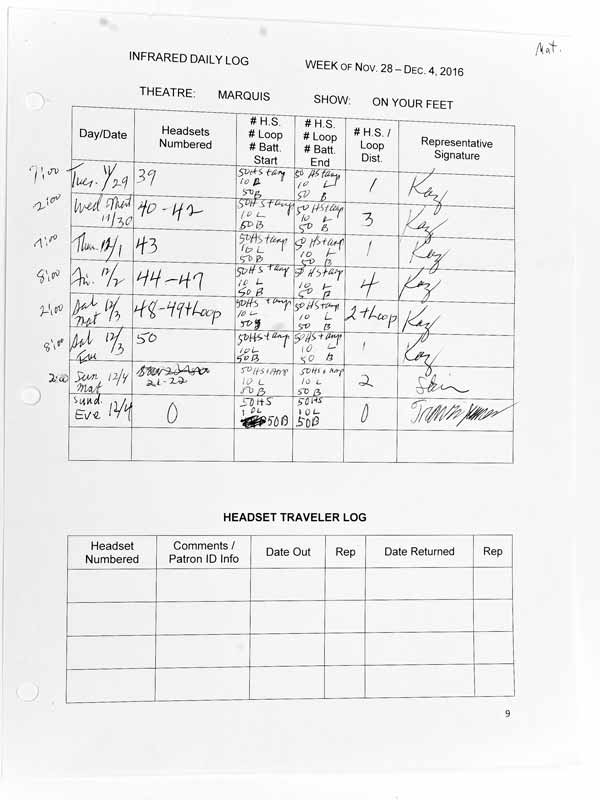 Mat.
INFRARED DAILY LOG WEEK OF NOV. 28 – DEC. 4, 2016
THEATRE: MARQUIS SHOW: ON YOUR FEET
Day/Date Headsets Numbered # H.S. # Loop # Batt. Start # H.S. # Loop # Batt. End # H.S. / Loop Dist. Representative Signature
7:00 Tues. 11/29 39 50HS + amp 10 L 50B 50 HS + amp 10 L 50 B 1 Kaz
2:00 Wed 11/30 40-42 50HS + amp 10 L 50B 50HS + amp 10 L 50 B 3 Kaz
7:00 Thu. 12/1 43 50HS + amp 10 L 50B 50HS + amp 10 L 50B 1 Kaz
8:00 Fri. 12/2 44-47 50HS + amp 10 L 50 B 50HS + amp 10 L 50 B 4 Kaz
2:00 Sat Mat 12/3 48-49+Loop 50HS + amp 10 L 50HS + amp 10 L 50 B 2+Loop Kaz
8:00 Sat Eve 12/3 50 50HS + amp 10 L 50B 50HS + amp 10 L 50 B 1 Kaz
2:00 Sun Mat 12/4 21-22 50HS + Amp 10 L 50 B 50HS + Amp 10 L 50 B 2
Sund. Eve 12/4 0 50HS 10L 50B 50HS 10L 50B 0
HEADSET TRAVELER LOG
Headset Numbered Comments / Patron ID Info Date Out Rep Date Returned Rep
9